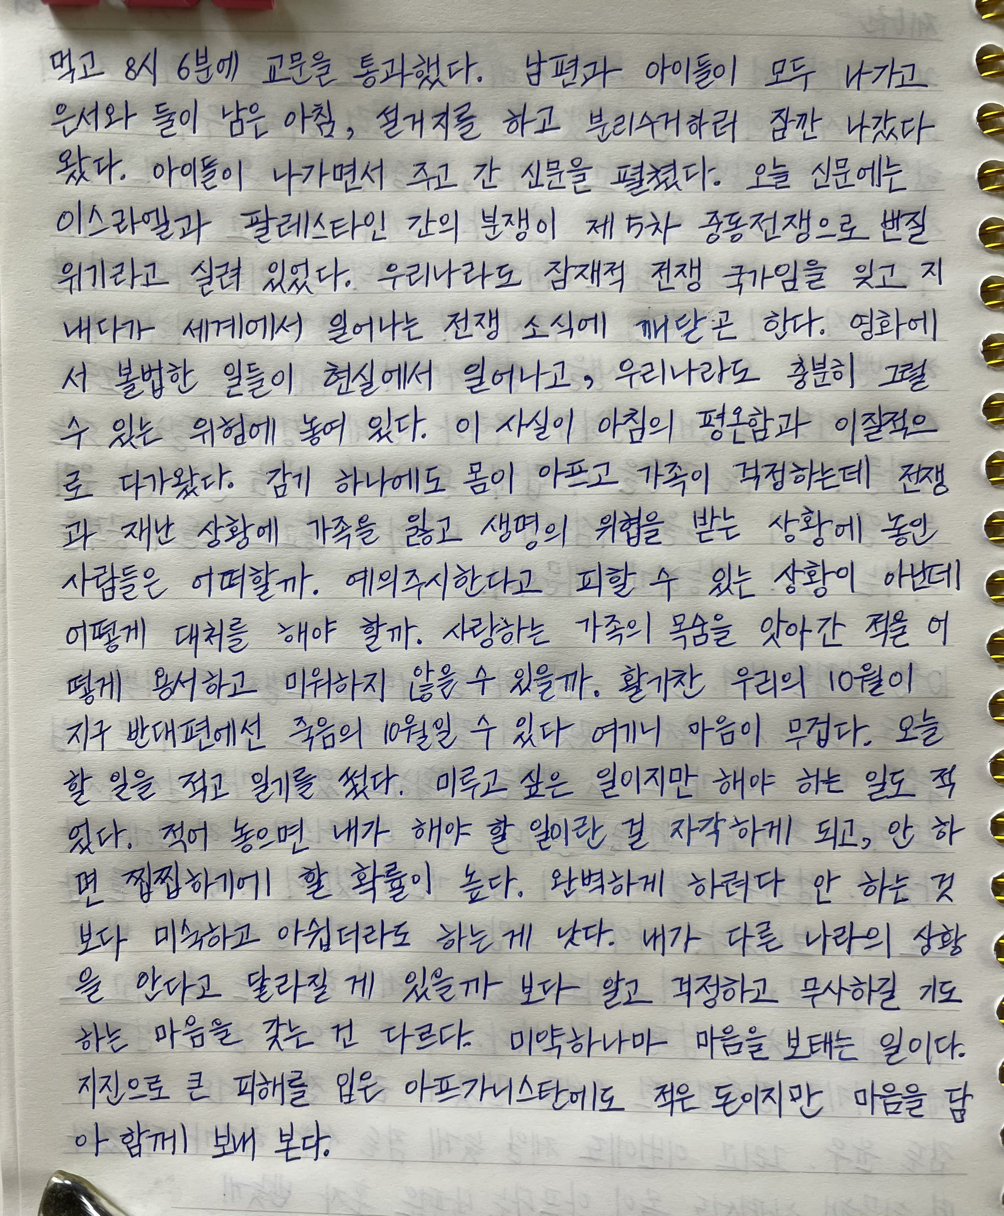 먹고 8시 6분에 교문을 통과했다. 남편과 아이들이 모두 나가고
은서와 둘이 남은 아침, 설거지를 하고 분리수거하러 잠깐 나갔다
왔다. 아이들이 나가면서 주고 간 신문을 펼쳤다. 오늘 신문에는
이스라엘과 팔레스타인 간의 분쟁이 제5차 중동전쟁으로 번질
위기라고 실려 있었다. 우리나라도 잠재적 전쟁 국가임을 잊고 지
내다가 세계에서 일어나는 전쟁 소식에 깨닫곤 한다. 영화에
서 볼법한 일들이 현실에서 일어나고, 우리나라도 충분히 그럴
수 있는 위험에 놓여 있다. 이 사실이 아침의 평온함과 이질적으
로 다가왔다. 감기 하나에도 몸이 아프고 가족이 걱정하는데 전쟁
과 재난 상황에 가족을 잃고 생명의 위협을 받는 상황에 놓인
사람들은 어떠할까. 예의주시한다고 피할 수 있는 상황이 아닌데
어떻게 대처를 해야 할까. 사랑하는 가족의 목숨을 앗아간 적을 어
떻게 용서하고 미워하지 않을 수 있을까. 활기찬 우리의 10월이
지구 반대편에선 죽음의 10월일 수 있다 여기니 마음이 무겁다. 오늘
할 일을 적고 일기를 썼다. 미루고 싶은 일이지만 해야 하는 일도 적
었다. 적어 놓으면 내가 해야 할 일이란 걸 자각하게 되고, 안 하
면 찝찝하기에 할 확률이 높다. 완벽하게 하려다 안 하는 것
보다 미숙하고 아쉽더라도 하는게 낫다. 내가 다른 나라의 상황
을 안다고 달라질 게 있을까 보다 알고 걱정하고 무사하길 기도
하는 마음을 갖는 건 다르다. 미약하나마 마음을 보태는 일이다.
지진으로 큰 피해를 입은 아프가니스탄에도 적은 돈이지만 마음을 담
아 함께 보내 본다.